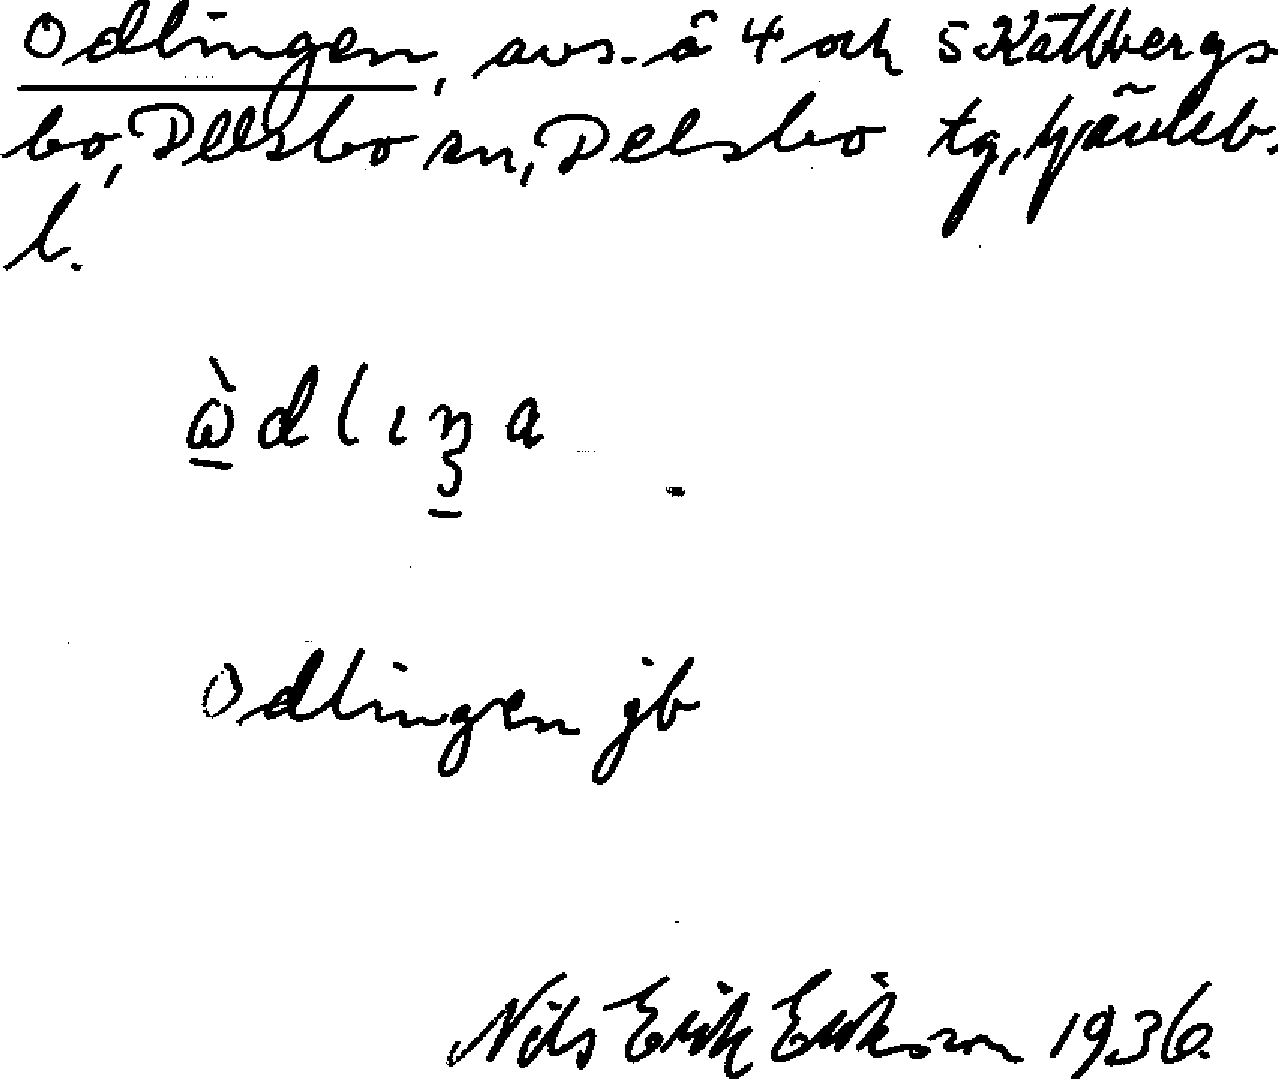 Odlingen, avs. å 4 och 5 Kättbergs
bo, Delsbo sn, Delsbo tg, Gävleb.
l.
Odlingen jb
Nils Erik Erikson 1936.